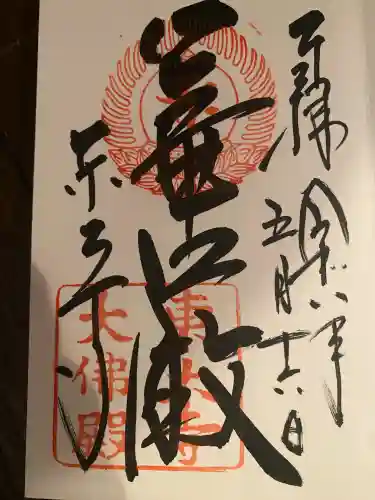 奉拝
平成廿八年
五月十六日
華嚴
東大寺
東大寺
大佛殿